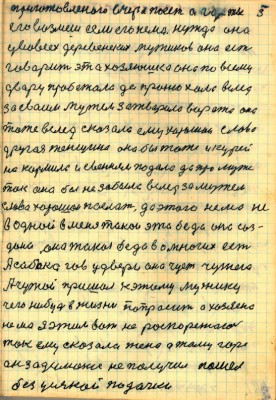 5
приготовленого вчера поест а гор
его возмеш сем его нема нужда она
у всех деревенских мужиков она ест
говарит эта хозяюшка она по всему
двару пробегала да проню хала вслед
за своим мужем затварила варота она
тоже вслед сказала ему харошые слова
другая женщина она бы тоже и курей
на кармила и свиням подала да про мужа
так она бы не забыла вслед за мужем
слова харошые послат, до этого нема не
в одной в меня такой эта беда она соз
дана она такая беда в о многих ест
А сабака гав у двери она чует чужого
А чужой пришол к этому мужику
чего нибуд в жизни попрасит а хозяина
нема Я этим вот не распорежаюс
так ему сказала жена а таму гор
он задиможе не получил пошел
без усякой подачки